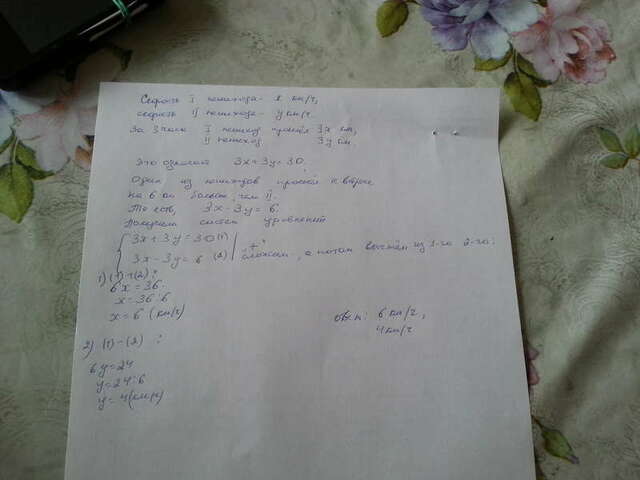 Скорость I пешехода - x км/ч,
скорость II пешехода - y км/ч.
За 3 часа I пешеход прошёл 3x км,
II пешеход 3y км.
Это означает 3x+3y=30.
Один из пешеходов прошёл к встрече
на 6 км больше, чем II.
То есть, 3x-3y=6.
Получаем систему уравнений
3x+3y=30 (1)
3x-3y=6 (2) "+" сложим, а потом вычтем из 1-го 2-го:
1) (1)+(2):
6x=36.
x=36:6
x=6 (км/ч)
2) (1)-(2) :
6y=24
y=24:6
y=4 (км/ч)
Ответ: 6 км/ч,
4 км/ч